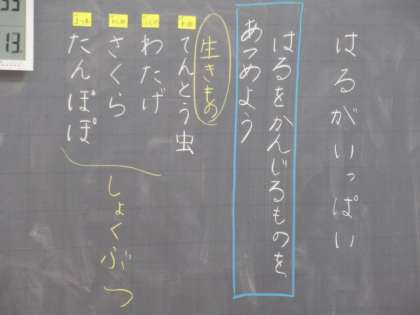 はるがいっぱい
はるをかんじるものを
あつめよう
生きもの
てんとう虫
わたげ
さくら
たんぽぽ
しょくぶつ